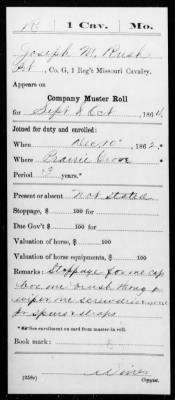 R | 1 Cav. | Mo.
Joseph M. Rush
Pvt, Co. G, 1 Reg't Missouri Cavalry.
Appears on
Company Muster Roll
for Sept & Oct, 1864.
Joined for duty and enrolled:
When Dec. 10, 1862.
Where Prairie Grove
Period 3 years.*
Present or absent Not stated
Stoppage, $ 100 for
Due Gov't $ 100 for
Valuation of horse, $ 100
Valuation of horse equipments, $ 100
Remarks: Stoppage for one cap
box one brush thong one
wiper one screwdriver one
pr spurs & straps
* As See enrollment on card from muster-in roll.
Book mark:
(358c) Copyist.